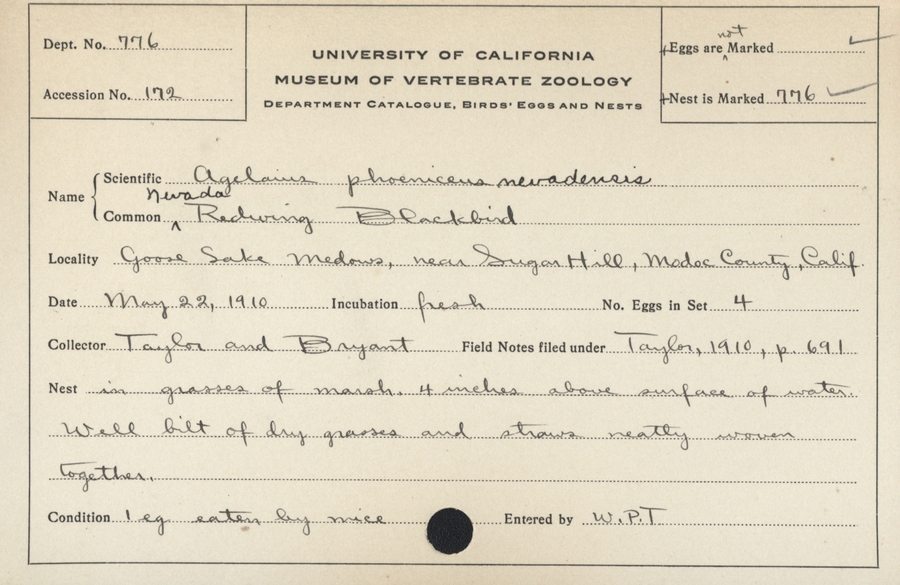 Dept. No. 776
Accession No. 172
UNIVERSITY OF CALIFORNIA
MUSEUM OF VERTEBRATE ZOOLOGY
DEPARTMENT CATALOGUE, BIRDS' EGGS AND NESTS
Eggs are not Marked
Nest is Marked 776
Name
Scientific Agelaius phoeniceus nevadensis
Common Nevada Redwing Blackbird
Locality Goose Lake Medows, near Sugar Hill, Modoc County, Calif.
Date May 22, 1910 Incubation fresh No. Eggs in Set 4
Collector Taylor and Bryant Field Notes filed under Taylor, 1910, p. 691
Nest in grasses of marsh. 4 inches above surface of water.
Well bilt of dry grasses and straws neatly woven
together.
Condition 1 eg eaten by mice Entered by W.P.T